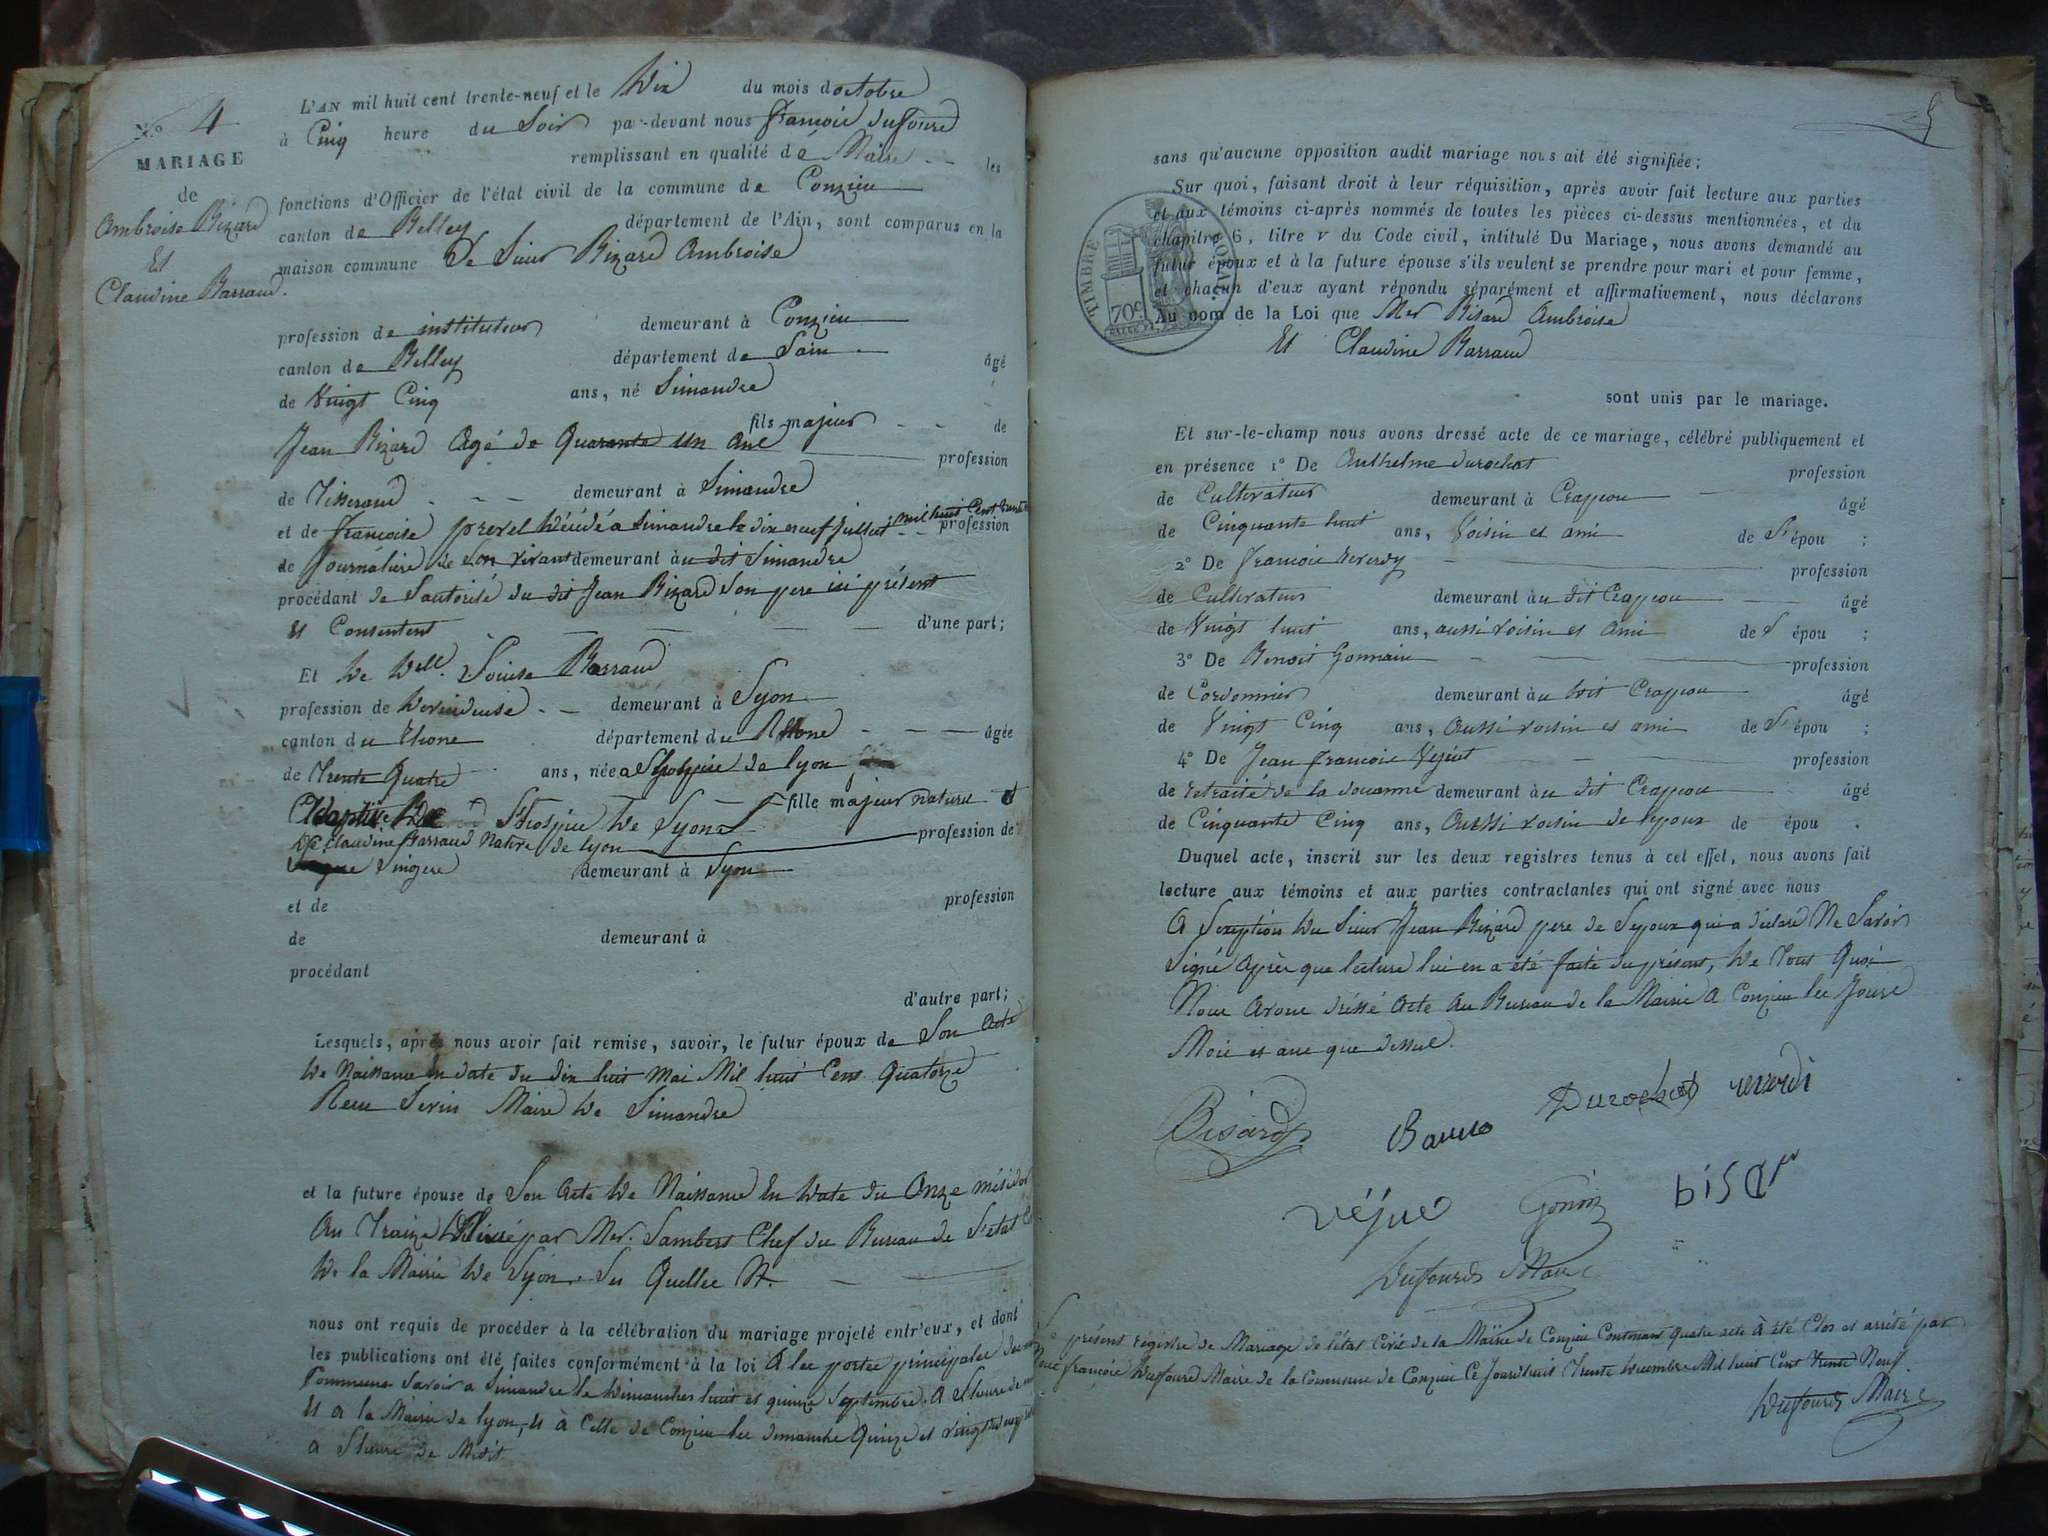 N.° 4
MARIAGE
de
Ambroise Bizard
Et
Claudine Barraud.
L'AN mil huit cent trente-neuf et le Dix du mois d'octobre
à Cinq heure du Soir par-devant nous françois dufourd
remplissant en qualité de Maire les
fonctions d'Officier de l'état civil de la commune de Conzieu
canton de Belley département de l'Ain, sont comparus en la
maison commune De Sieur Bizard Ambroise
profession de instituteur demeurant à Conzieu
canton de Belley département de Lain âgé
de Vingt Cinq ans, né Simandre
fils majeur de
Jean Bizard Agé de Quarante un ans profession
de Tisserand demeurant à Simandre
et de françoise prevel Décédé a Simandre le dix neuf juillet mil huit Cent profession
de Journalière de son vivant demeurant àu dit Simandre
procédant de Lautorité du dit Jean Bizard Son pere ici présent
Et Consentent d'une part;
Et De Dell. Louise Barraud
profession de Devideuse demeurant à Lyon
canton du Rhone département du Rhone âgée
de Trente Quatre ans, née a Lhospice de lyon
fille majeur naturel et
Adoptive De Lhospice De Lyon
De Claudine Barraud Native de lyon profession de
Lingere demeurant à Lyon
et de profession
de demeurant à
procédant
d'autre part;
Lesquels, après nous avoir fait remise, savoir, le futur époux de Son Acte
De Naissance En date du dix huit Mai Mil huit Cent Quatorze
Recu Maire De Simandre
et la future épouse de Son Acte De Naissance En Date du Onze mésidor
An Traize Délivré par Mer. Lambert Chef du Bureau de L'état
De la Mairie De Lyon
nous ont requis de procéder à la célébration du mariage projeté entr'eux, et dont
les publications ont été faites conformément à la loi A les portes principales
Commune Savoir a Simandre le Dimanches huit et quinze Septembre A Lheure de
Et a la Mairie de lyon, et à Celle de Conzieu les dimanche Quinze et vingt deux
a Lheure de Midit
5
sans qu'aucune opposition audit mariage nous ait été signifiée;
Sur quoi, faisant droit à leur réquisition, après avoir fait lecture aux parties
et aux témoins ci-après nommés de toutes les pièces ci-dessus mentionnées, et du
chapitre 6, titre v du Code civil, intitulé Du Mariage, nous avons demandé au
futur époux et à la future épouse s'ils veulent se prendre pour mari et pour femme,
et chacun d'eux ayant répondu séparément et affirmativement, nous déclarons
Au nom de la Loi que Mer Bisard Ambroise
Et Claudine Barraud
TIMBRE ROYAL
70c
sont unis par le mariage.
Et sur-le-champ nous avons dressé acte de ce mariage, célébré publiquement et
en présence 1° De Anthelme durochat profession
de Cultivateur demeurant à Crappou âgé
de Cinquante huit ans, Voisin et ami de L'épou ;
2° De francois reverdy profession
de Cultivateur demeurant àu dit Crappou âgé
de Vingt huit ans, aussi voisin et ami de L'épou ;
3° De Benoit Gonnain profession
de Cordonnier demeurant àu dit Crappou âgé
de Vingt Cinq ans, Aussi voisin et ami de L'épou ;
4° De Jean francois profession
de retraité de la douanne demeurant àu dit Crappou âgé
de Cinquante Cinq ans, Aussi voisin de lepoux de épou .
Duquel acte, inscrit sur les deux registres tenus à cet effet, nous avons fait
lecture aux témoins et aux parties contractantes qui ont signé avec nous
A Lexeption Du Sieur Jean Bizard pere de Lepoux qui a déclaré Ne Savoir
Signé Après que lecture lui en a été faite du présent, De Tout Quoi
Nous Avons dréssé Acte Au Bureau de la Mairie A Conzieu les Jours
Mois et ans que dessus.
Bisard
Durochat
reverdi
Dufourd Maire
Le présent registre de Mariage de létat Civil de la Mairie de Conzieu Contenant Quatre acte à été Clos et arrété par
Nous françois Dufourd Maire de la Commune de Conzieu Ce Jourdhuit Trente Décembre Mil huit Cent Trente Neuf.
Dufourd Maire